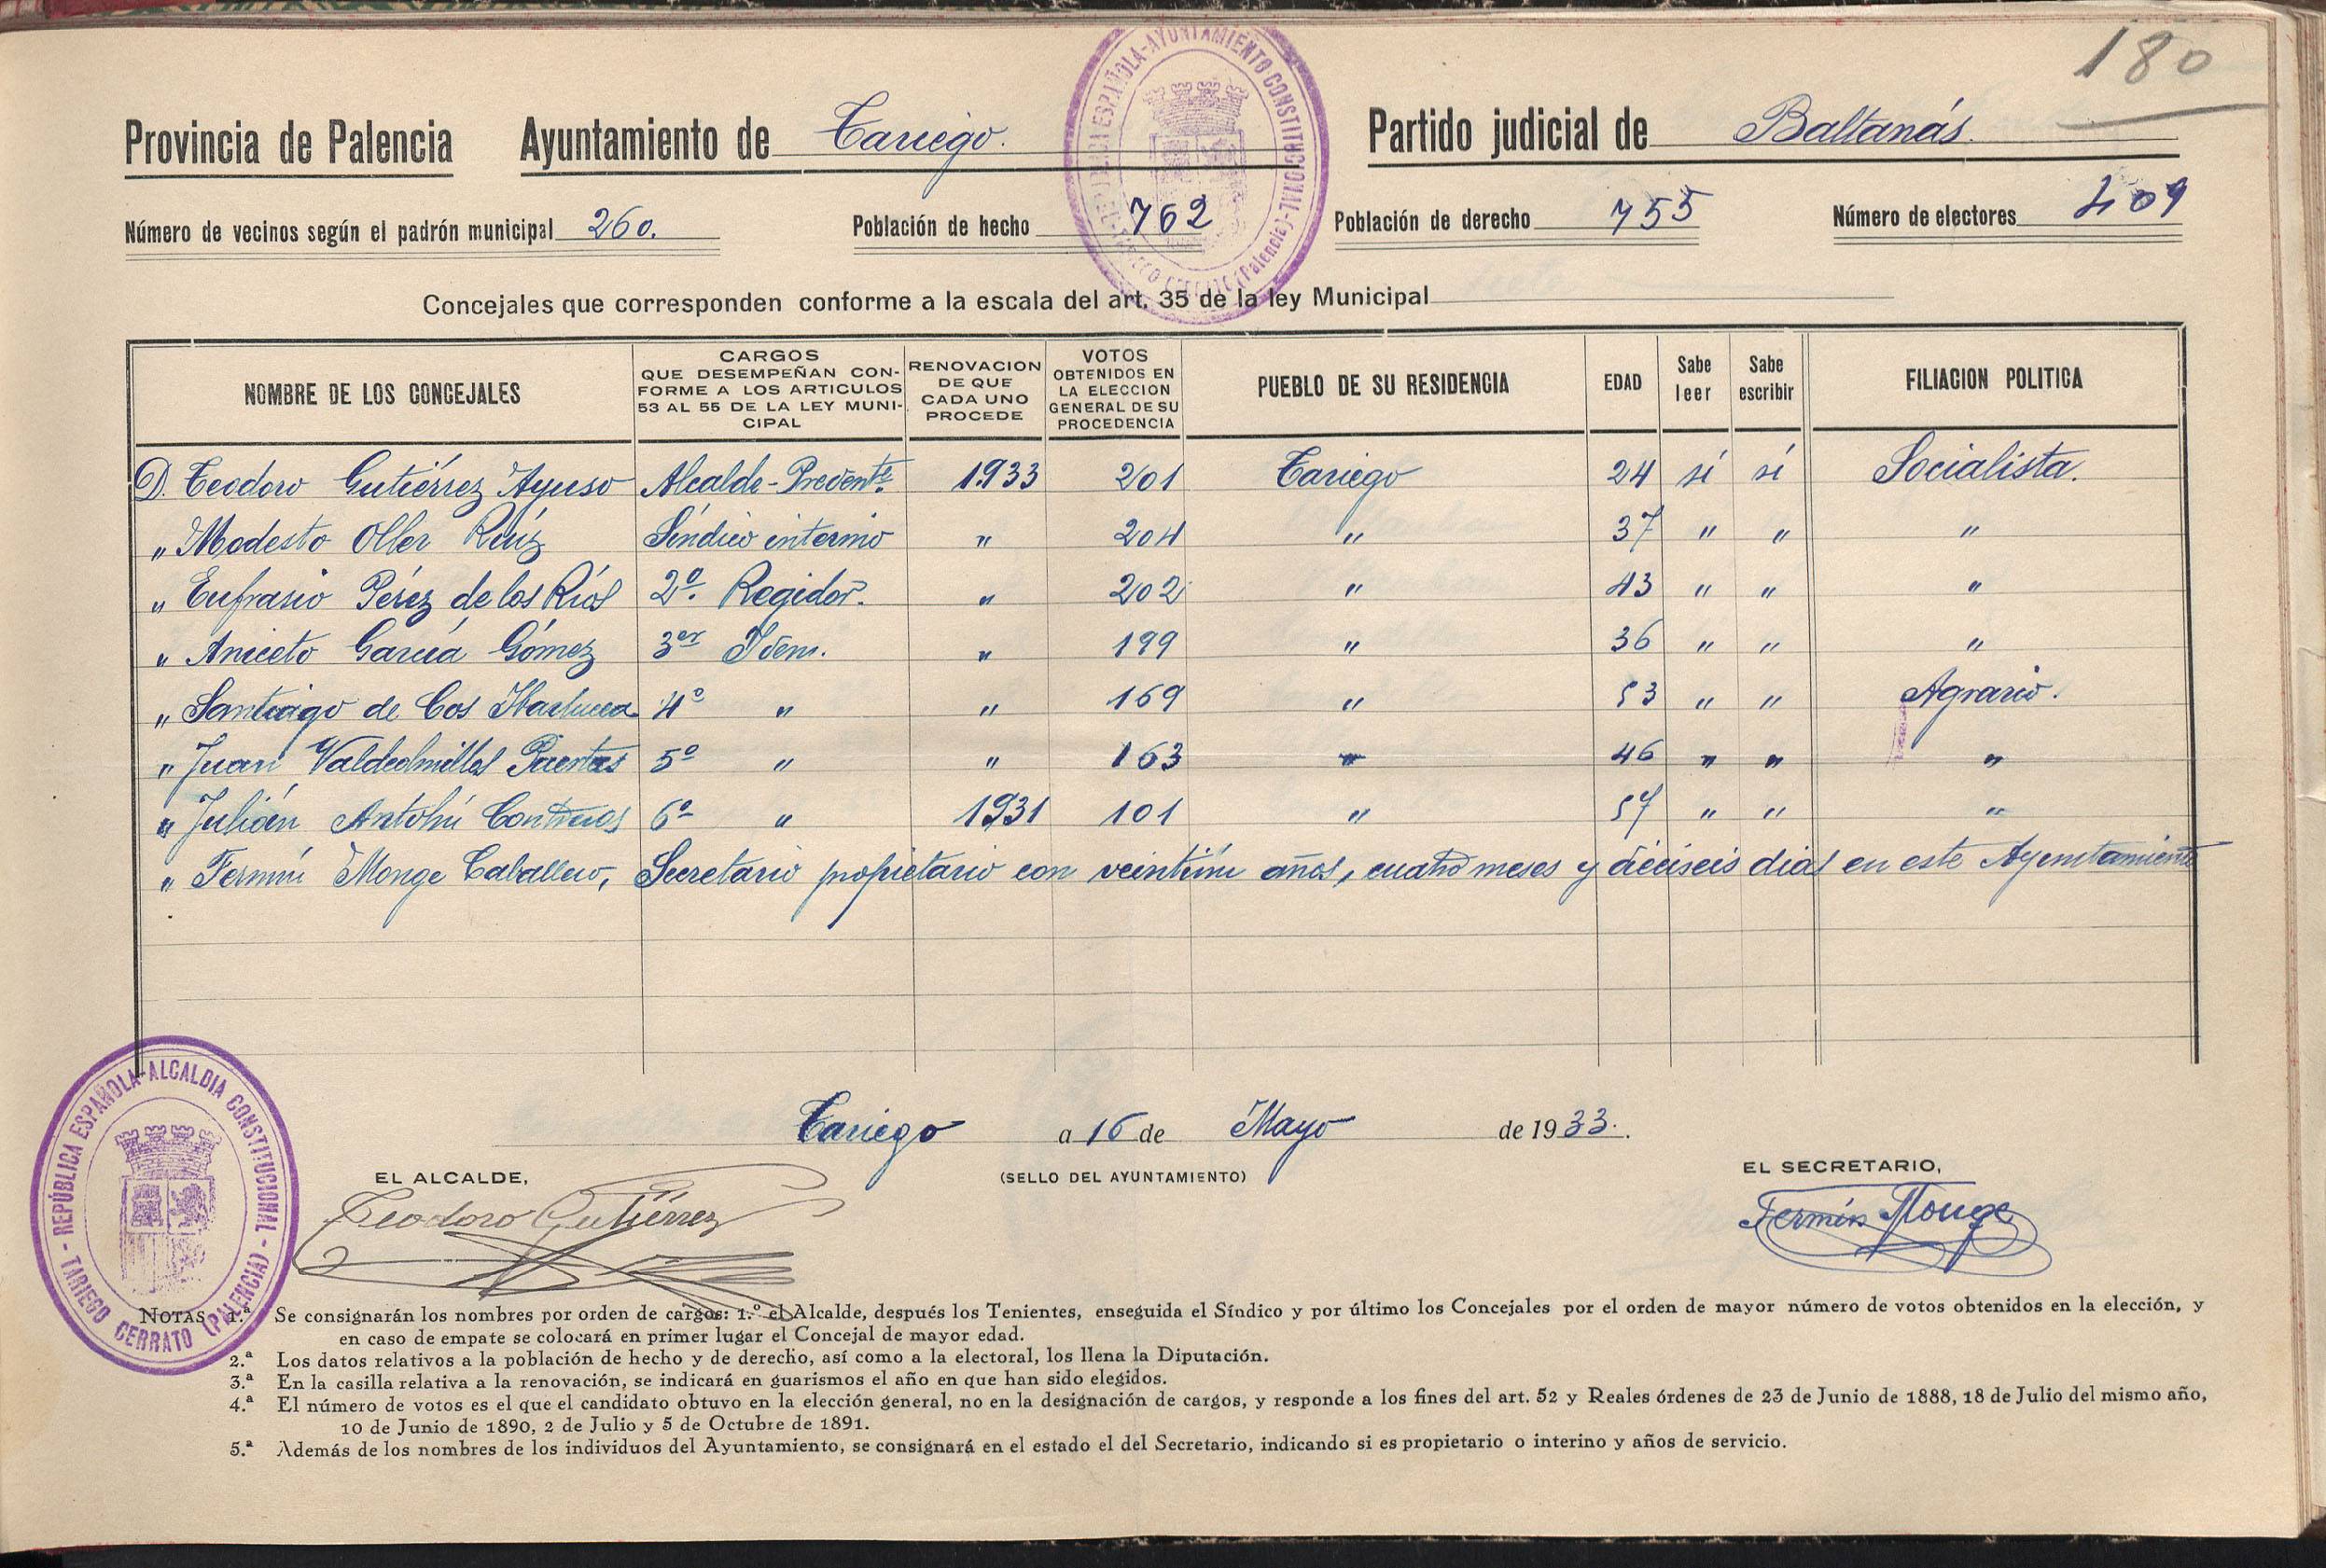 180
Provincia de Palencia Ayuntamiento de Tariego. Partido judicial de Baltanás.
Número de vecinos según el padrón municipal 260. Población de hecho 762 Población de derecho 755 Número de electores 409
Concejales que corresponden conforme a la escala del art. 35 de la ley Municipal
NOMBRE DE LOS CONCEJALES CARGOS QUE DESEMPEÑAN CON- FORME A LOS ARTICULOS 53 AL 55 DE LA LEY MUNI- CIPAL RENOVACION DE QUE CADA UNO PROCEDE VOTOS OBTENIDOS EN LA ELECCION GENERAL DE SU PROCEDENCIA PUEBLO DE SU RESIDENCIA EDAD Sabe leer Sabe escribir FILIACION POLITICA
D. Teodoro Gutiérrez Ayuso Alcalde-Predente. 1933 201 Tariego 24 sí sí Socialista.
" Modesto Oller Ruíz Síndico interino " 204 " 37 " " "
" Eufrasio Pérez de los Ríos 2º. Regidor. " 202 " 43 " " "
" Aniceto García Gómez 3er Idem. " 199 " 36 " " "
" Santiago de Cos 4º " " 169 " 53 " " Agrario.
" Juan Valdeolmillos Puertas 5º " " 163 " 46 " " "
" Julián Antolín Contreras 6º " 1931 101 " 57 " " "
" Fermín Monge Caballero, Secretario propietario con veintiún años, cuatro meses y dieciseis dias en este Ayuntamiento
Tariego a 16 de Mayo de 1933.
EL ALCALDE, (SELLO DEL AYUNTAMIENTO) EL SECRETARIO,
Teodoro Gutiérrez Fermín Monge
REPÚBLICA ESPAÑOLA-ALCALDIA CONSTITUCIONAL - TARIEGO CERRATO (PALENCIA)
NOTAS 1.ª Se consignarán los nombres por orden de cargos: 1.º el Alcalde, después los Tenientes, enseguida el Síndico y por último los Concejales por el orden de mayor número de votos obtenidos en la elección, y
en caso de empate se colocará en primer lugar el Concejal de mayor edad.
2.ª Los datos relativos a la población de hecho y de derecho, así como a la electoral, los llena la Diputación.
3.ª En la casilla relativa a la renovación, se indicará en guarismos el año en que han sido elegidos.
4.ª El número de votos es el que el candidato obtuvo en la elección general, no en la designación de cargos, y responde a los fines del art. 52 y Reales órdenes de 23 de Junio de 1888, 18 de Julio del mismo año,
10 de Junio de 1890, 2 de Julio y 5 de Octubre de 1891.
5.ª Además de los nombres de los individuos del Ayuntamiento, se consignará en el estado el del Secretario, indicando si es propietario o interino y años de servicio.